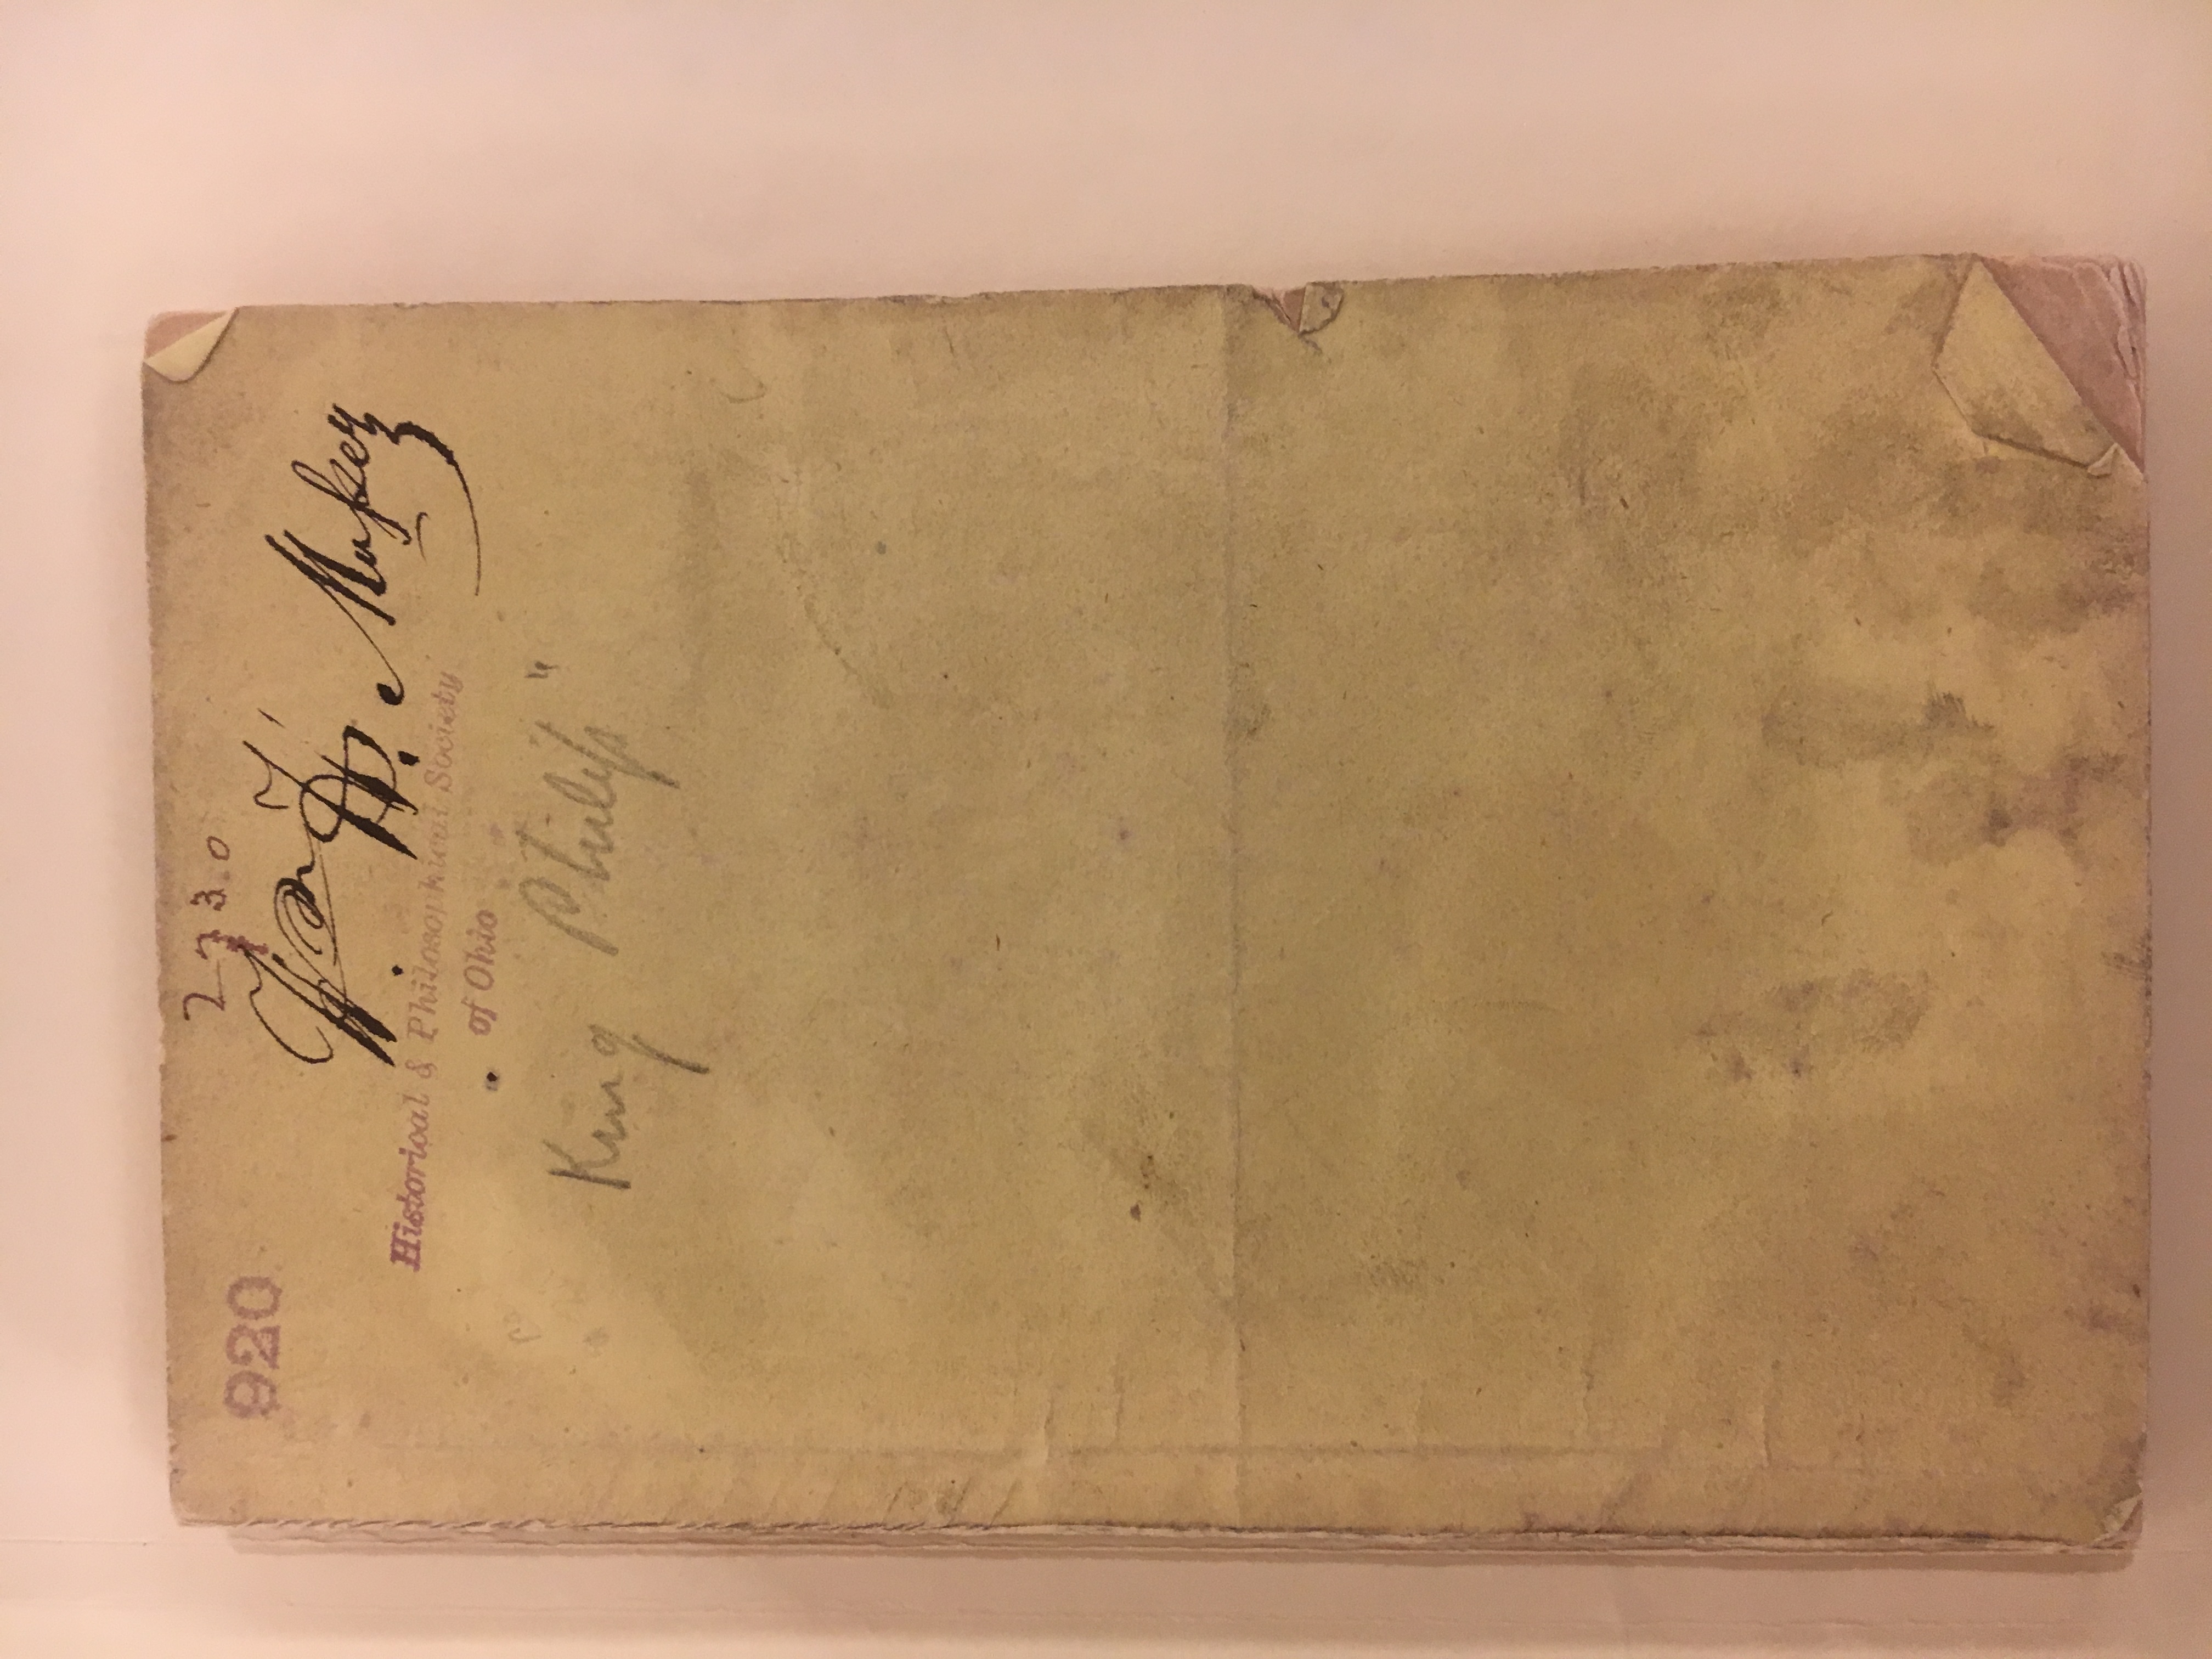 920
Wm. H. Maker
Historical & Philosophical Society
of Ohio
King Philip"